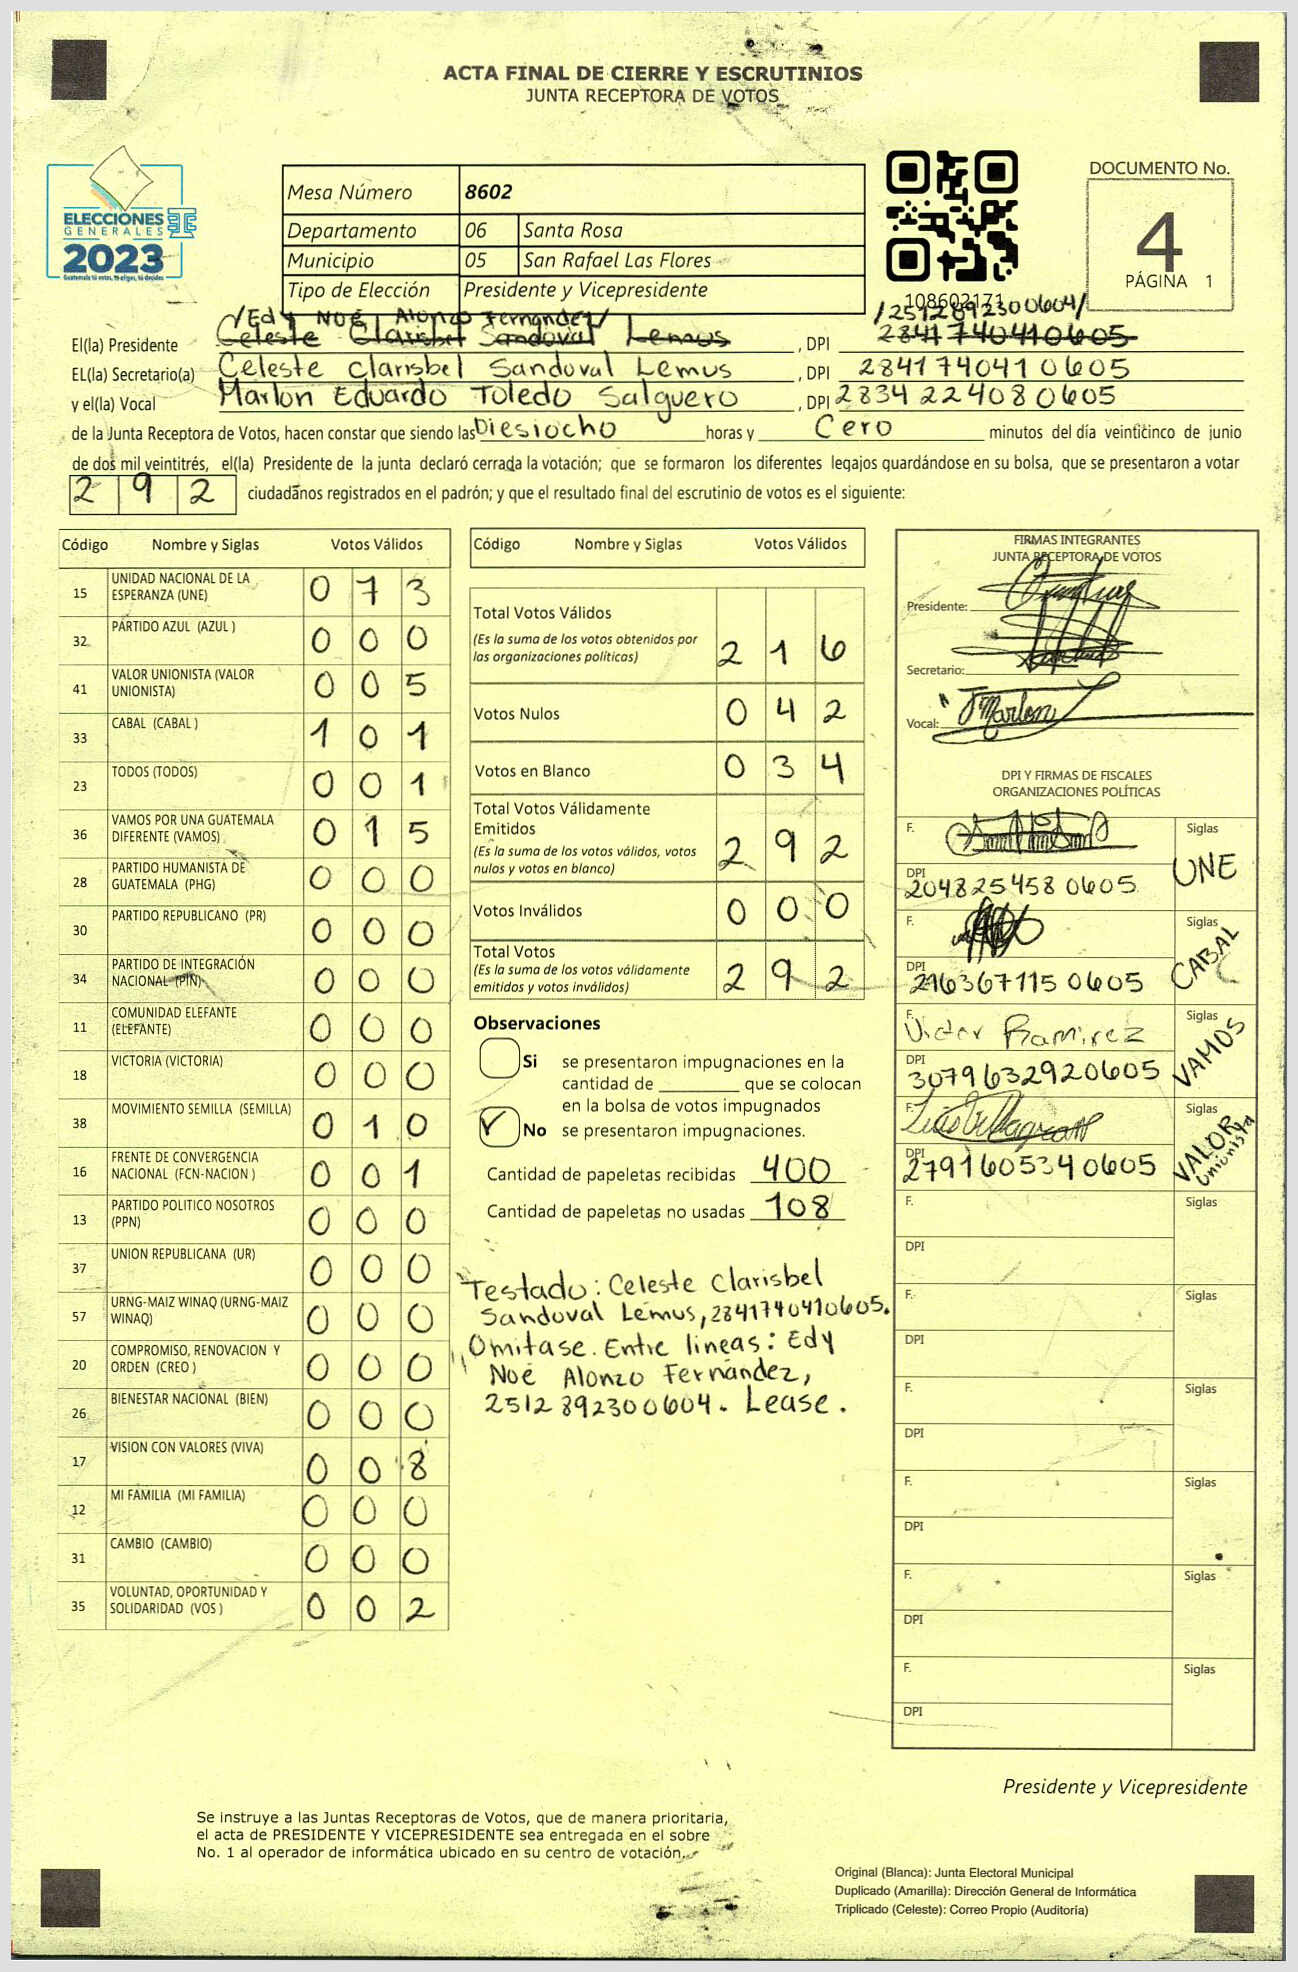 ACTA FINAL DE CIERRE Y ESCRUTINIOS
JUNTA RECEPTORA DE VOTOS
ELECCIONES
GENERALES
2023
Mesa Número 8602
Departamento 06 Santa Rosa
Municipio 05 San Rafael Las Flores
Tipo de Elección Presidente y Vicepresidente
108602171
DOCUMENTO No.
4
PÁGINA 1
/Edy Noé Alonzo Fernández/ /2512892300604/
El(la) Presidente Celeste Clarisbel Sandoval Lemus , DPI 2841740410605
EL(la) Secretario(a) Celeste clarisbel Sandoval Lemus , DPI 2841740410605
y el(la) Vocal Marlon Eduardo Toledo Salguero , DPI 2834224080605
de la Junta Receptora de Votos, hacen constar que siendo las Diesiocho horas y Cero minutos del día veinticinco de junio
de dos mil veintitrés, el(la) Presidente de la junta declaró cerrada la votación; que se formaron los diferentes legajos guardándose en su bolsa, que se presentaron a votar
292 ciudadanos registrados en el padrón; y que el resultado final del escrutinio de votos es el siguiente:
Código Nombre y Siglas Votos Válidos
15 UNIDAD NACIONAL DE LA ESPERANZA (UNE) 073
32 PARTIDO AZUL (AZUL ) 000
41 VALOR UNIONISTA (VALOR UNIONISTA) 005
33 CABAL (CABAL ) 101
23 TODOS (TODOS) 001
36 VAMOS POR UNA GUATEMALA DIFERENTE (VAMOS) 015
28 PARTIDO HUMANISTA DE GUATEMALA (PHG) 000
30 PARTIDO REPUBLICANO (PR) 000
34 PARTIDO DE INTEGRACIÓN NACIONAL (PIN) 000
11 COMUNIDAD ELEFANTE (ELEFANTE) 000
18 VICTORIA (VICTORIA) 000
38 MOVIMIENTO SEMILLA (SEMILLA) 010
16 FRENTE DE CONVERGENCIA NACIONAL (FCN-NACION ) 001
13 PARTIDO POLITICO NOSOTROS (PPN) 000
37 UNION REPUBLICANA (UR) 000
57 URNG-MAIZ WINAQ (URNG-MAIZ WINAQ) 000
20 COMPROMISO, RENOVACION Y ORDEN (CREO ) 000
26 BIENESTAR NACIONAL (BIEN) 000
17 VISION CON VALORES (VIVA) 008
12 MI FAMILIA (MI FAMILIA) 000
31 CAMBIO (CAMBIO) 000
35 VOLUNTAD, OPORTUNIDAD Y SOLIDARIDAD (VOS ) 002
Código Nombre y Siglas Votos Válidos
Total Votos Válidos 216
(Es la suma de los votos obtenidos por
las organizaciones políticas)
Votos Nulos 042
Votos en Blanco 034
Total Votos Válidamente
Emitidos 292
(Es la suma de los votos válidos, votos
nulos y votos en blanco)
Votos Inválidos 000
Total Votos 292
(Es la suma de los votos válidamente
emitidos y votos inválidos)
Observaciones
Si se presentaron impugnaciones en la
cantidad de ________ que se colocan
en la bolsa de votos impugnados
No se presentaron impugnaciones.
Cantidad de papeletas recibidas 400
Cantidad de papeletas no usadas 108
Testado: Celeste Clarisbel
Sandoval Lemus, 2841740410605.
Omitase. Entre lineas: Edy
Noé Alonzo Fernández,
2512892300604. Lease.
FIRMAS INTEGRANTES
JUNTA RECEPTORA DE VOTOS
Presidente:
Secretario:
Vocal: Marlon
DPI Y FIRMAS DE FISCALES
ORGANIZACIONES POLÍTICAS
F. Siglas UNE
DPI 2048254580605
F. Siglas CABAL
DPI 2163671150605
F. Victor Ramirez Siglas VAMOS
DPI 3079632920605
F. Siglas VALOR Unionista
DPI 2791605340605
F. Siglas
DPI
F. Siglas
DPI
F. Siglas
DPI
F. Siglas
DPI
F. Siglas
DPI
F. Siglas
DPI
Presidente y Vicepresidente
Se instruye a las Juntas Receptoras de Votos, que de manera prioritaria,
el acta de PRESIDENTE Y VICEPRESIDENTE sea entregada en el sobre
No. 1 al operador de informática ubicado en su centro de votación.
Original (Blanca): Junta Electoral Municipal
Duplicado (Amarilla): Dirección General de Informática
Triplicado (Celeste): Correo Propio (Auditoría)